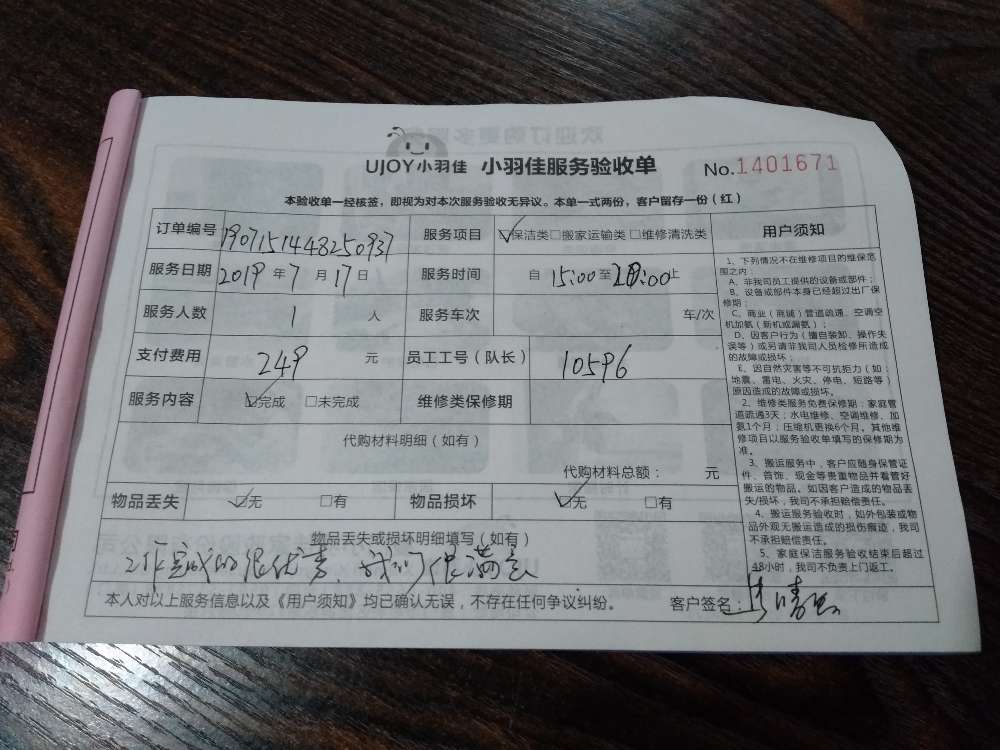 UJOY小羽佳 小羽佳服务验收单 No.1401671
本验收单一经核签，即视为对本次服务验收无异议。本单一式两份，客户留存一份（红）
订单编号 1907151448250937 服务项目 ☑保洁类□搬家运输类□维修清洗类
服务日期 2019年7月17日 服务时间 自15:00至18:00止
服务人数 1人 服务车次 车/次
支付费用 249元 员工工号（队长） 10596
服务内容 ☑完成 □未完成 维修类保修期
代购材料明细（如有）
代购材料总额： 元
物品丢失 ☑无 □有 物品损坏 ☑无 □有
物品丢失或损坏明细填写（如有）
工作完成的很优秀，我们很满意
本人对以上服务信息以及《用户须知》均已确认无误，不存在任何争议纠纷。 客户签名：
用户须知
1、下列情况不在维修项目的维保范
围之内：
A、非我司员工提供的设备或部件；
B、设备或部件本身已经超过出厂保
修期；
C、商业（商铺）管道疏通、空调空
机加氨（新机或漏氨）；
D、因客户行为（擅自装卸、操作失
误等）或另请非我司人员检修所造成
的故障或损坏；
E、因自然灾害等不可抗拒力（如：
地震、雷电、火灾、停电、短路等）
原因造成的故障或损坏。
2、维修类服务免费保修期：家庭管
道疏通3天；水电维修、空调维修、加
氨1个月；压缩机更换6个月。其他维
修项目以服务验收单填写的保修期为
准。
3、搬运服务中，客户应随身保管证
件、首饰、现金等贵重物品并看管好
搬运的物品。如因客户造成的物品丢
失/损坏，我司不承担赔偿责任。
4、搬运服务验收时，如外包装或物
品外观无搬运造成的损伤痕迹，我司
不承担赔偿责任。
5、家庭保洁服务验收结束后超过
48小时，我司不负责上门返工。